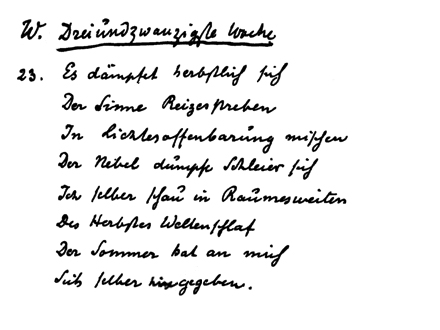 W. Dreiundzwanzigste Woche
23. Es dämpfet herbstlich sich
Der Sinne Reizesstreben
In Lichtesoffenbarung mischen
Der Nebel dumpfe Schleier sich
Ich selber schau in Raumesweiten
Des Herbstes Weltenschlaf
Der Sommer hat an mich
Sich selber hingegeben.